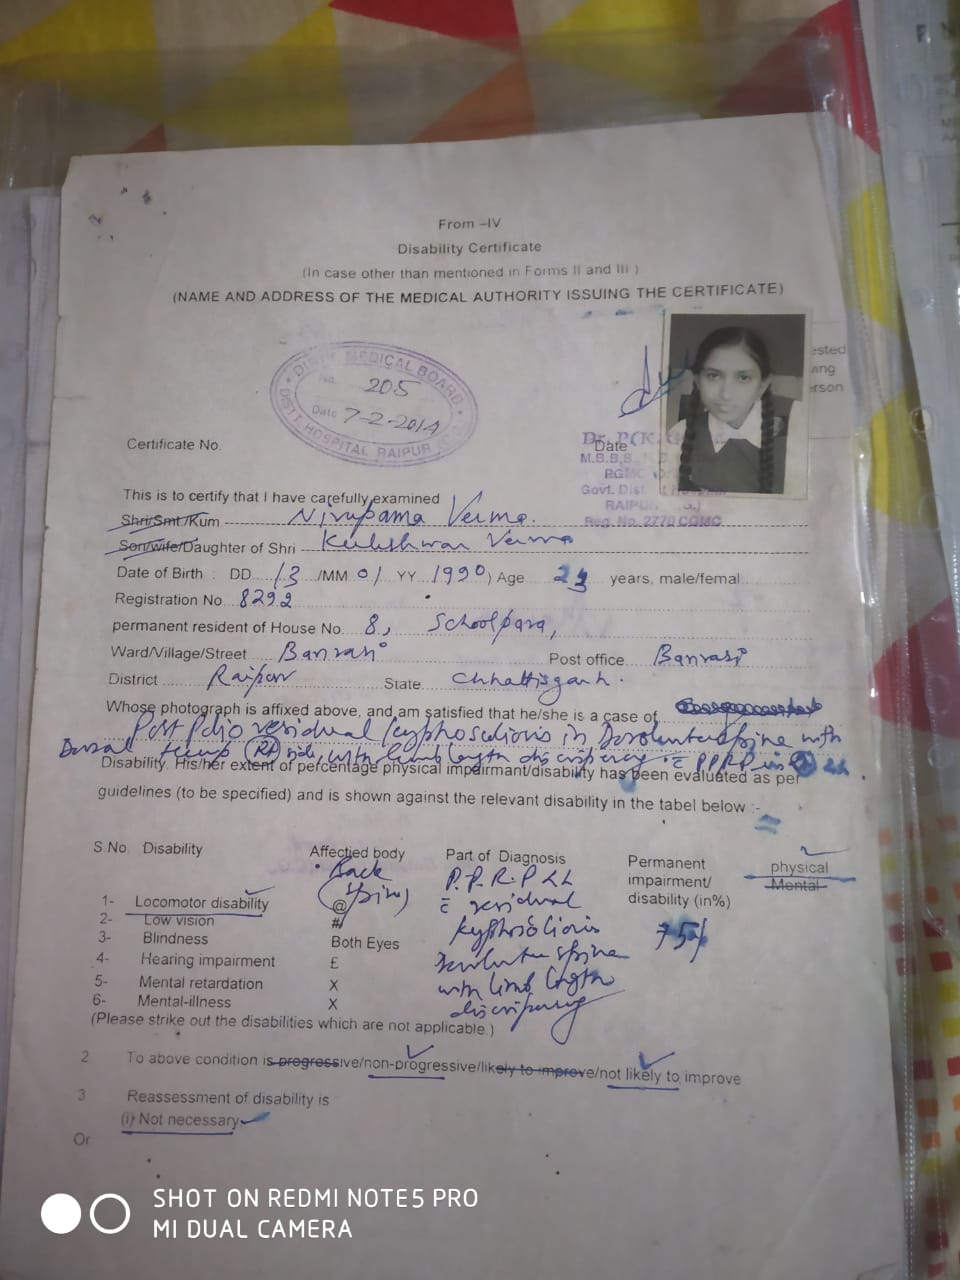 From –IV
Disability Certificate
(In case other than mentioned in Forms II and III )
(NAME AND ADDRESS OF THE MEDICAL AUTHORITY ISSUING THE CERTIFICATE)
DISTT MEDICAL BOARD
No. 205
Date 7-2-2014
DISTT. HOSPITAL RAIPUR
ested
ang
erson
Certificate No.
Date
Dr. P.K.
M.B.B.S.
Govt. Dist
RAIPUR
Reg. No. 2770 CGMC
This is to certify that I have carefully examined
Shri/Smt./Kum Nirupama Verma.
Son/wife/Daughter of Shri Kuleshwar Verma
Date of Birth : DD 13 /MM 01 YY 1990) Age years, male/femal
Registration No. 8292
permanent resident of House No. 8, Schoolpara,
Ward/Village/Street Banrasi Post office Banrasi
District Raipur State Chhattisgarh.
Whose photograph is affixed above, and am satisfied that he/she is a case of
Post Polio residual kyphoscoliosis in spine with
Dorsal side, with limb length PPRP in
Disability. His/her extent of percentage physical impairmant/disability has been evaluated as per
guidelines (to be specified) and is shown against the relevant disability in the tabel below :-
S.No. Disability Affectied body Part of Diagnosis Permanent impairment/ disability (in%) physical
Mental
Back (spine) P.P.R.P LL
1- Locomotor disability @ c residual
2- Low vision #
3- Blindness Both Eyes kyphoscoliosis 75%
4- Hearing impairment £ spine
5- Mental retardation X with limb length
6- Mental-illness X
(Please strike out the disabilities which are not applicable.)
2 To above condition is progressive/non-progressive/likely to improve/not likely to improve
3 Reassessment of disability is
(i) Not necessary
Or
SHOT ON REDMI NOTE5 PRO
MI DUAL CAMERA